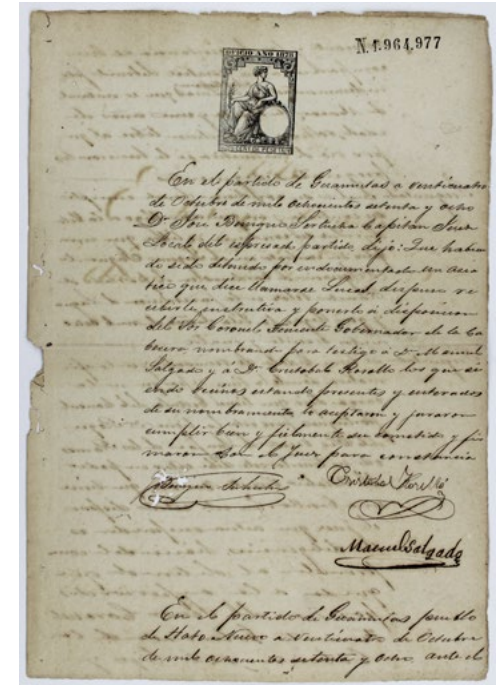 N. 1.964,977
OFICIO AÑO 1878
En el partido de Guamutas a veinticuatro
de Octubre de mil ochocientos setenta y ocho
Dn José Benigno Capitan Juez
Local del espresado partido, dijo: Que habien
do sido detenido por indocumentado un asia
tico que dice llamarse Lucas, dispuso re
cibirle instructiva y ponerlo á disposicion
del Sor Coronel Teniente Gobernador de la Ca
becera nombrando para testigo á Dn Manuel
Salgado y a Dn Cristobal Rosello los que si
endo vecinos estando presentes y enterados
de su nombramiento lo aceptaron y juraron
cumplir bien y fielmente su cometido y fir
maron con el Juez para constancia
Benigno
Cristobal Roselló
Manuel Salgado
En el partido de Guamutas pueblo
de Hato Nuevo a veinticuatro de Octubre
de mil ochocientos setenta y ocho ante el